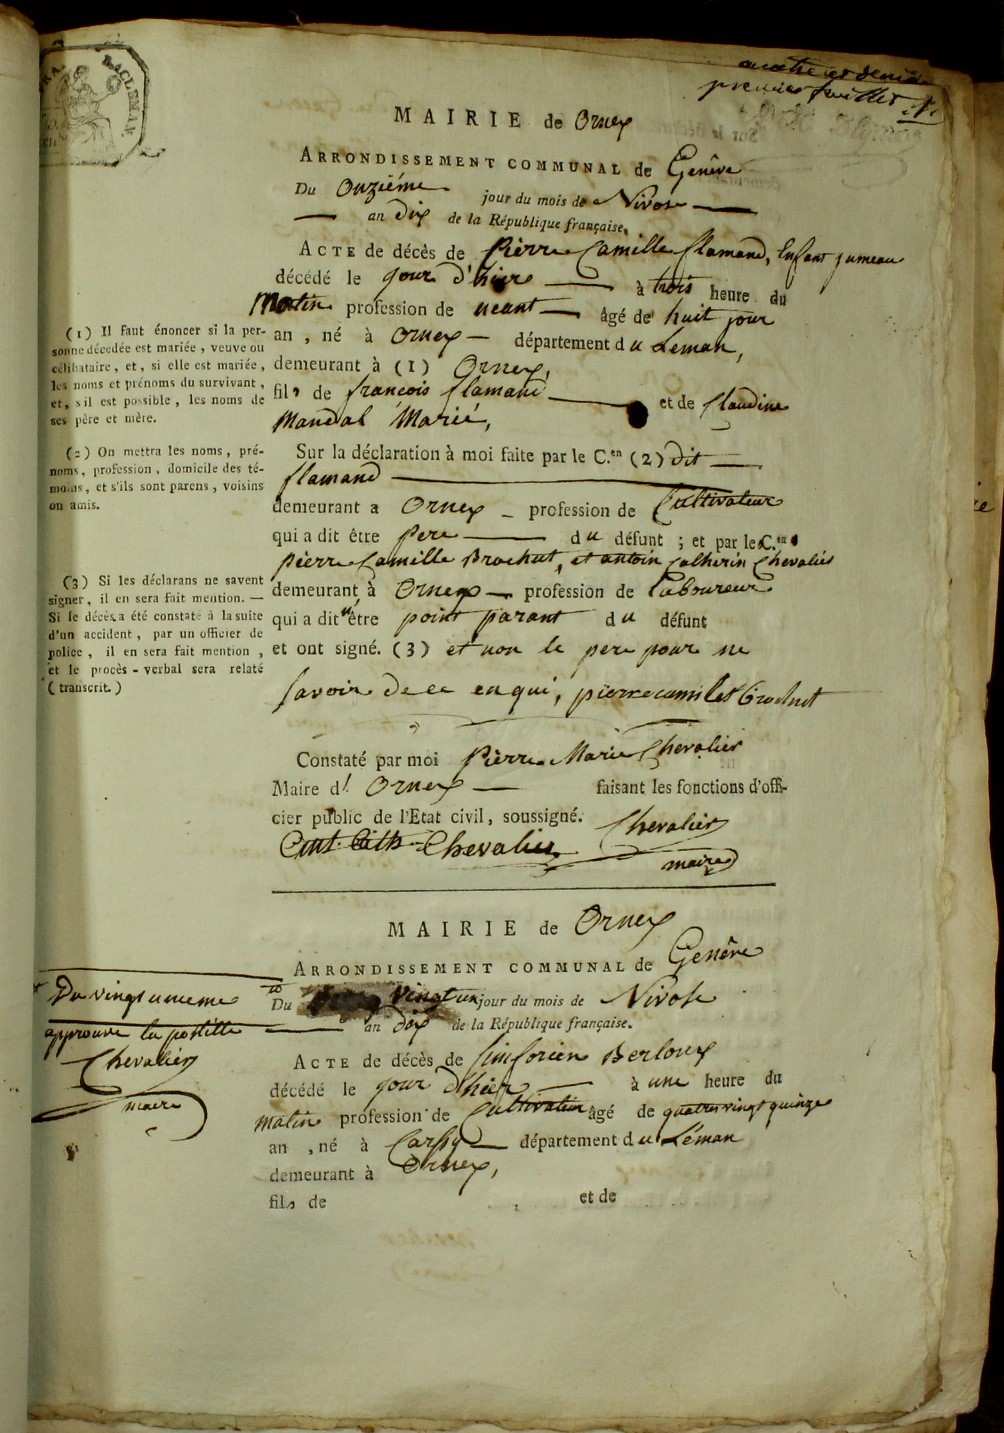 premier feuillet
MAIRIE de Ornex
ARRONDISSEMENT COMMUNAL de Genêve
Du Onziéme jour du mois de Nivose
an Dix de la République française.
ACTE de décès de Pierre Camille flamand, Enfant jumeau
décédé le jour d'hier à trois heure du
Matin profession de neant âgé de huit jour
an , né à Ornex département du Léman,
demeurant à (1) Ornex,
fils de françois flamand et de Claudine
Mandal Marié,
Sur la déclaration à moi faite par le C.en (2) dit
flamand
demeurant a Ornex profession de Cultivateur
qui a dit être Pere du défunt ; et par le C.en
Pierre Camille Brochut, et antoin Catherin Chevalier
demeurant à Ornex profession de Laboureur
qui a dit être point parant du défunt
et ont signé. (3) et non le pere pour ne
savoir de ce enqui, pierre camille Brochut
Constaté par moi Pierre Marie Chevalier
Maire d' Ornex faisant les fonctions d'offi-
cier public de l'Etat civil, soussigné. Chevalier
Ant. Cath. Chevalier maire
(1) Il faut énoncer si la per-
sonne décédée est mariée, veuve ou
célibataire, et, si elle est mariée,
les noms et prénoms du survivant,
et, s'il est possible, les noms de
ses père et mère.
(2) On mettra les noms, pré-
noms, profession, domicile des té-
moins, et s'ils sont parens, voisins
ou amis.
(3) Si les déclarans ne savent
signer, il en sera fait mention. —
Si le décès a été constaté à la suite
d'un accident, par un officier de
police, il en sera fait mention,
et le procès-verbal sera relaté
(transcrit.)
MAIRIE de Ornex
ARRONDISSEMENT COMMUNAL de Genêve
Du vingt un jour du mois de Nivose
an dix de la République française.
ACTE de décès de Sinforien Berloux
décédé le jour d'hier à une heure du
matin profession de Cultivateur âgé de quatre vingt quinze
an , né à département du Léman
demeurant à Ornex,
fils de , et de
Du vingt unieme
approuvé la postille
Chevalier
maire